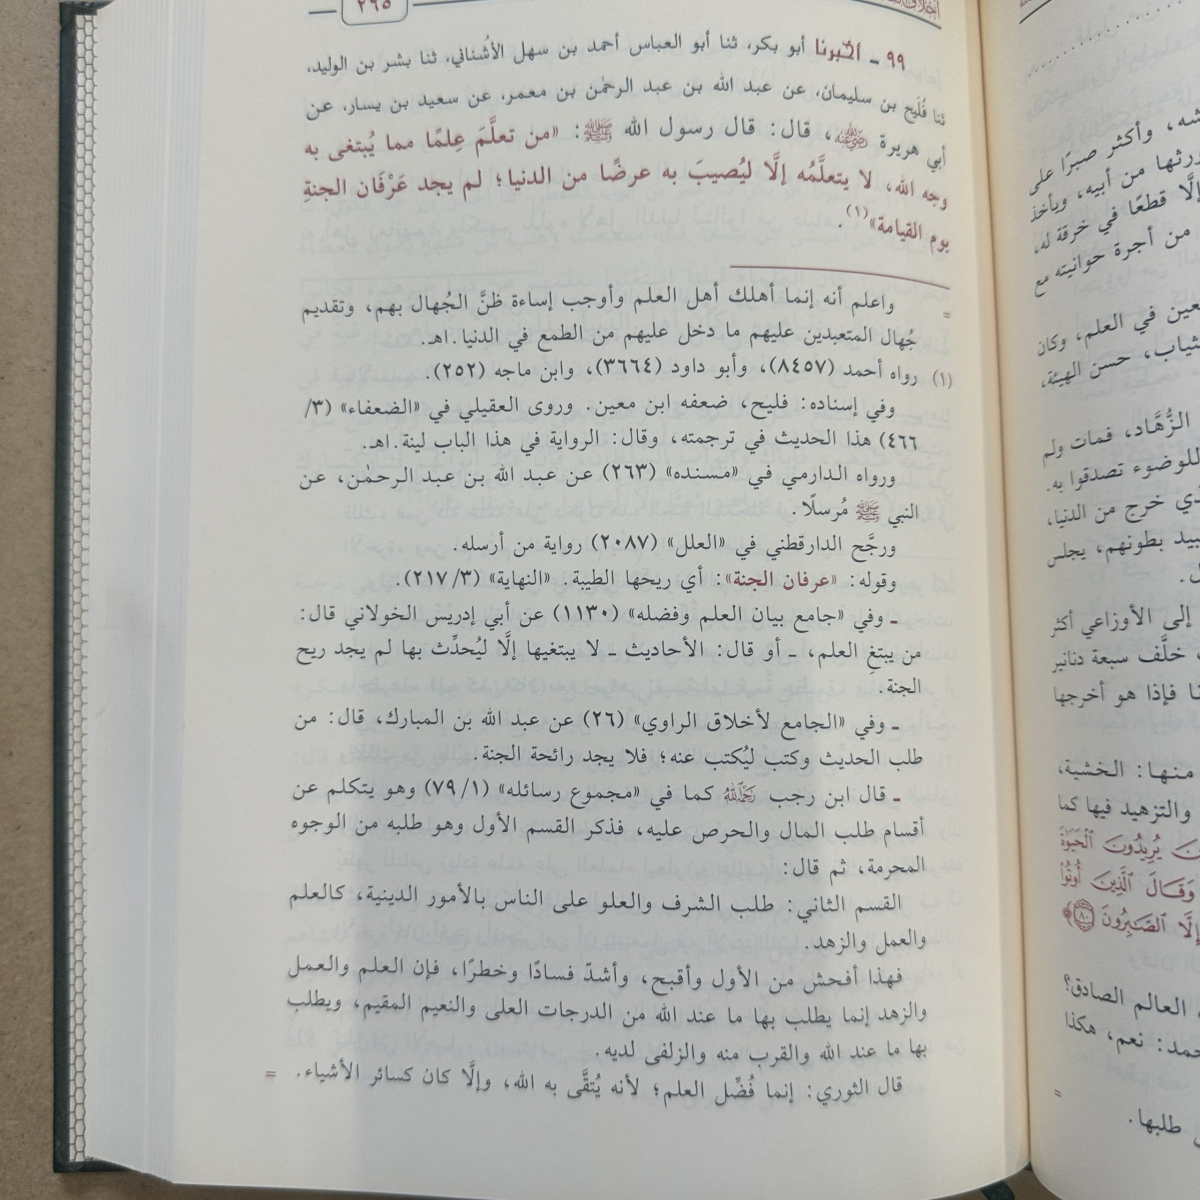 ٢٩٥
٩٩ ـ أخبرنا أبو بكر، ثنا أبو العباس أحمد بن سهل الأُشناني، ثنا بشر بن الوليد،
ثنا فُلَيح بن سليمان، عن عبد الله بن عبد الرحمٰن بن معمر، عن سعيد بن يسار، عن
أبي هريرة رضي الله عنه، قال: قال رسول الله ﷺ: «من تعلَّمَ عِلمًا مما يُبتغى به
وجه الله، لا يتعلَّمُه إلَّا ليُصيبَ به عرضًا من الدنيا؛ لم يجد عَرْفَان الجنةِ
يوم القيامة»(١).
= واعلم أنه إنما أهلك أهل العلم وأوجب إساءة ظنَّ الجُهال بهم، وتقديم
جُهال المتعبدين عليهم ما دخل عليهم من الطمع في الدنيا.اهـ.
(١) رواه أحمد (٨٤٥٧)، وأبو داود (٣٦٦٤)، وابن ماجه (٢٥٢).
وفي إسناده: فليح، ضعفه ابن معين. وروى العقيلي في «الضعفاء» (٣/
٤٦٦) هذا الحديث في ترجمته، وقال: الرواية في هذا الباب لينة.اهـ.
ورواه الدارمي في «مسنده» (٢٦٣) عن عبد الله بن عبد الرحمٰن، عن
النبي ﷺ مُرسلًا.
ورجَّح الدارقطني في «العلل» (٢٠٨٧) رواية من أرسله.
وقوله: «عرفان الجنة»: أي ريحها الطيبة. «النهاية» (٢١٧/٣).
ـ وفي «جامع بيان العلم وفضله» (١١٣٠) عن أبي إدريس الخولاني قال:
من يبتغ العلم، ـ أو قال: الأحاديث ـ لا يبتغيها إلَّا ليُحدِّث بها لم يجد ريح
الجنة.
ـ وفي «الجامع لأخلاق الراوي» (٢٦) عن عبد الله بن المبارك، قال: من
طلب الحديث وكتب ليُكتب عنه؛ فلا يجد رائحة الجنة.
ـ قال ابن رجب رحمه الله كما في «مجموع رسائله» (٧٩/١) وهو يتكلم عن
أقسام طلب المال والحرص عليه، فذكر القسم الأول وهو طلبه من الوجوه
المحرمة، ثم قال:
القسم الثاني: طلب الشرف والعلو على الناس بالأمور الدينية، كالعلم
والعمل والزهد.
فهذا أفحش من الأول وأقبح، وأشدّ فسادًا وخطرًا، فإن العلم والعمل
والزهد إنما يطلب بها ما عند الله من الدرجات العلى والنعيم المقيم، ويطلب
بها ما عند الله والقرب منه والزلفى لديه.
قال الثوري: إنما فُضِّل العلم؛ لأنه يُتقَّى به الله، وإلَّا كان كسائر الأشياء. =
وأكثر صبرًا على
من أبيه، ويأخذ
إلَّا قطعًا في خرقة له،
من أجرة حوانيته مع
في العلم، وكان
حسن الهيئة،
الزُّهَّاد، فمات ولم
للوضوء تصدقوا به.
خرج من الدنيا،
بطونهم، يجلس
إلى الأوزاعي أكثر
خلَّف سبعة دنانير
فإذا هو أخرجها
منها: الخشية،
والتزهيد فيها كما
يُرِيدُونَ ٱلْحَيَوٰةَ
وَقَالَ ٱلَّذِينَ أُوتُواْ
إِلَّا ٱلصَّٰبِرُونَ ٨٠﴾
العالم الصادق؟
نعم، هكذا
=
طلبها.